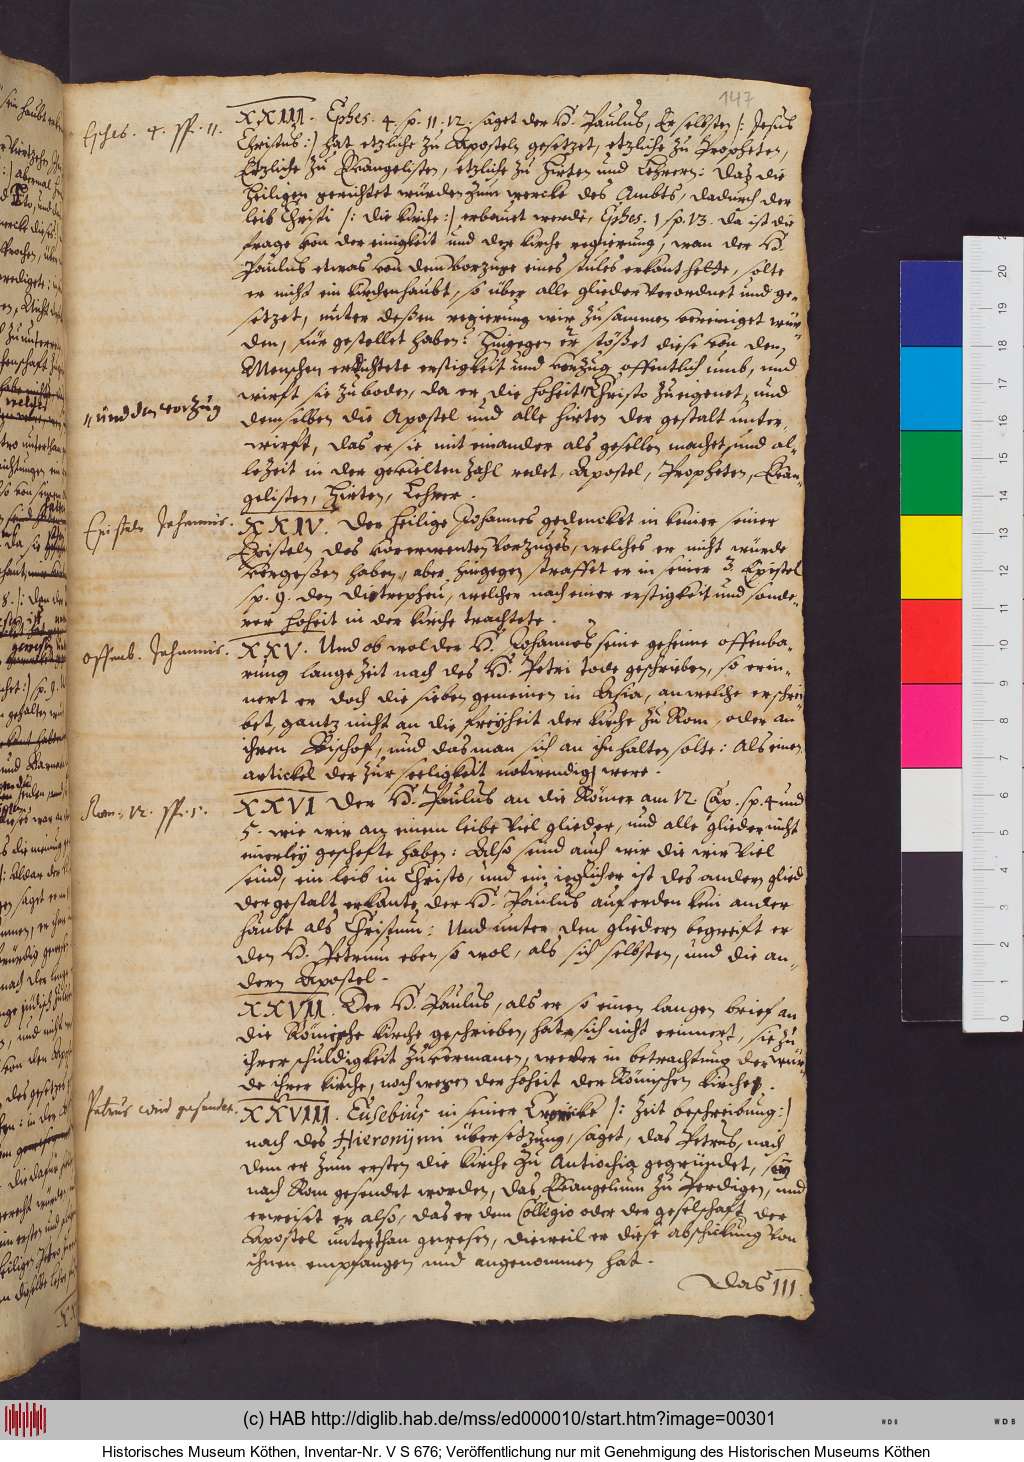 147
Ephes. 4. ps. 11.
XXIII. Ephes. 4. sp. 11. 12. saget der H. Paulus, Er selbsten /: Jesus
Christus :/ hat etzliche zu Aposteln gesetzet, etzliche zu Propheten,
Etzliche zu Evangelisten, etzliche zu Hirten und Lehrern: Das die
Heiligen gerichtet würden zum wercke des Ambts, dadurch der
leib Christi /: die Kirche :/ erbauet werde, Ephes. 1 sp. 13. Da ist die
frage von der einigkeit und der Kirche regierung, wan der H.
Paulus etwas von dem vorzuge eines stules erkant hette, solte
er nicht ein Kirchenhaubt, so über alle glieder verordnet und ge-
setzet, unter deßen regierung wir zusammen vereiniget wür-
den, für gestellet haben: Hingegen er stößet diese von den
Menschen ertichtete erstigkeit und vorzug offentlich umb, und
wirft sie zu boden, da er die hoheit Christo zueigenet, und
" und den vorzug
demselben die Apostel und alle hirten der gestalt unter-
wirft, das er sie mit einander als gesellen machet, und al-
lezeit in der gevielten zahl redet, Apostel, Propheten, Evan-
gelisten, Hirten, Lehrer.
Episteln Johannis.
XXIV. Der heilige Johannes gedencket in keiner seiner
Episteln des vorerwenten vorzuges, welches er nicht würde
vergeßen haben, aber hingegen straffet er in seiner 3. Epistel
sp. 9. den Diotrephen, welcher nach einer erstigkeit und sonde-
rer hoheit in der kirche trachtete.
Offenb. Johannis.
XXV. Und ob wol der H. Johannes seine geheime offenba-
rung lange zeit nach des H. Petri tode geschrieben, so erin-
nert er doch die sieben gemeinen in Asia, an welche er schrei-
bet, gantz nicht an die freyheit der Kirche zu Rom, oder an
ihren Bischof, und das man sich an ihn halten solte: Als einen
artickel der zur seeligkeit notwendig were.
Rom. 12. ps. 5.
XXVI Der H. Paulus an die Römer am 12 Cap. sp. 4 und
5. wie wir an einem leibe viel glieder, und alle glieder nicht
einerley geschefte haben: Also seind auch wir die wir viel
seind, ein leib in Christo, und ein ieglicher ist des andern glied
der gestalt erkante der H. Paulus auf erden kein ander
haubt als Christum: Und unter den gliedern begreift er
den H. Petrum eben so wol, als sich selbsten, und die an-
dern Apostel.
XXVII. Der H. Paulus, als er so einen langen brief an
die Römische kirche geschrieben, hat sich nicht erinnert, sie zu
ihrer schuldigkeit zu vermanen, weder in betrachtung der wür-
de ihrer kirche, noch wegen der hoheit der Römischen kirche.
Petrus wird gesendet.
XXVIII. Eusebius in seiner Cronicke /: Zeit beschreibung :/
nach des Hieronÿmi übersetzung, saget, das Petrus, nach
dem er zum ersten die kirche zu Antiochia gegründet, seÿ
nach Rom gesendet worden, das Evangelium zu Perdigen, und
erweiset er also, das er dem Collegio oder der geselschaft der
Apostel unterthan gewesen, dieweil er diese abschickung von
ihnen empfangen und angenommen hat.
Das III.
(c) HAB http://diglib.hab.de/mss/ed000010/start.htm?image=00301
Historisches Museum Köthen, Inventar-Nr. V S 676; Veröffentlichung nur mit Genehmigung des Historischen Museums Köthen